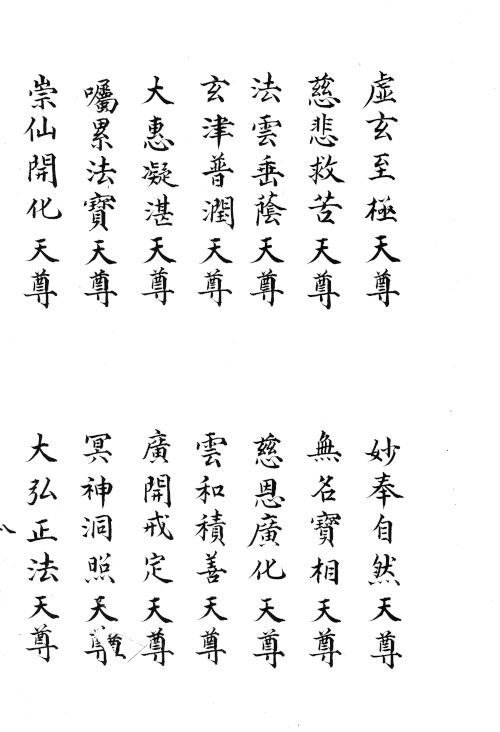 虛玄至極天尊
妙奉自然天尊
慈悲救苦天尊
無名寶相天尊
法雲垂蔭天尊
慈恩廣化天尊
玄津普潤天尊
雲和積善天尊
大惠凝湛天尊
廣開戒定天尊
囑累法寶天尊
冥神洞照天尊
崇仙開化天尊
大弘正法天尊
八